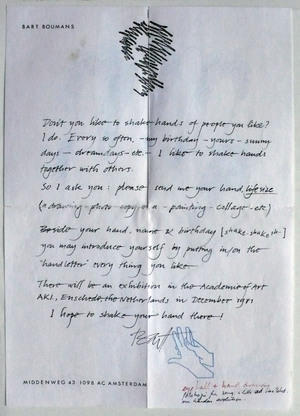 BART BOUMANS
Don't you like to shake hands of people you like?
I do. Every so often, - my birthday - yours - sunny
days - dreamdays - etc. - I like to shake hands
together with others.
So I ask you: please send me your hand, lifesize
(a drawing - photo copy of a - painting - collage - etc)
Beside your hand, name & birthday [shake-shake
you may introduce yourself by putting in/on the
'handletter' every thing you like
There will be an exhibition in the Academie of Art
A.K.I., Enschede the Netherlands in December 1981
I hope to shake your hand there!
Bart
MIDDENWEG 43 1098 AC AMSTERDAM
a hand drawing